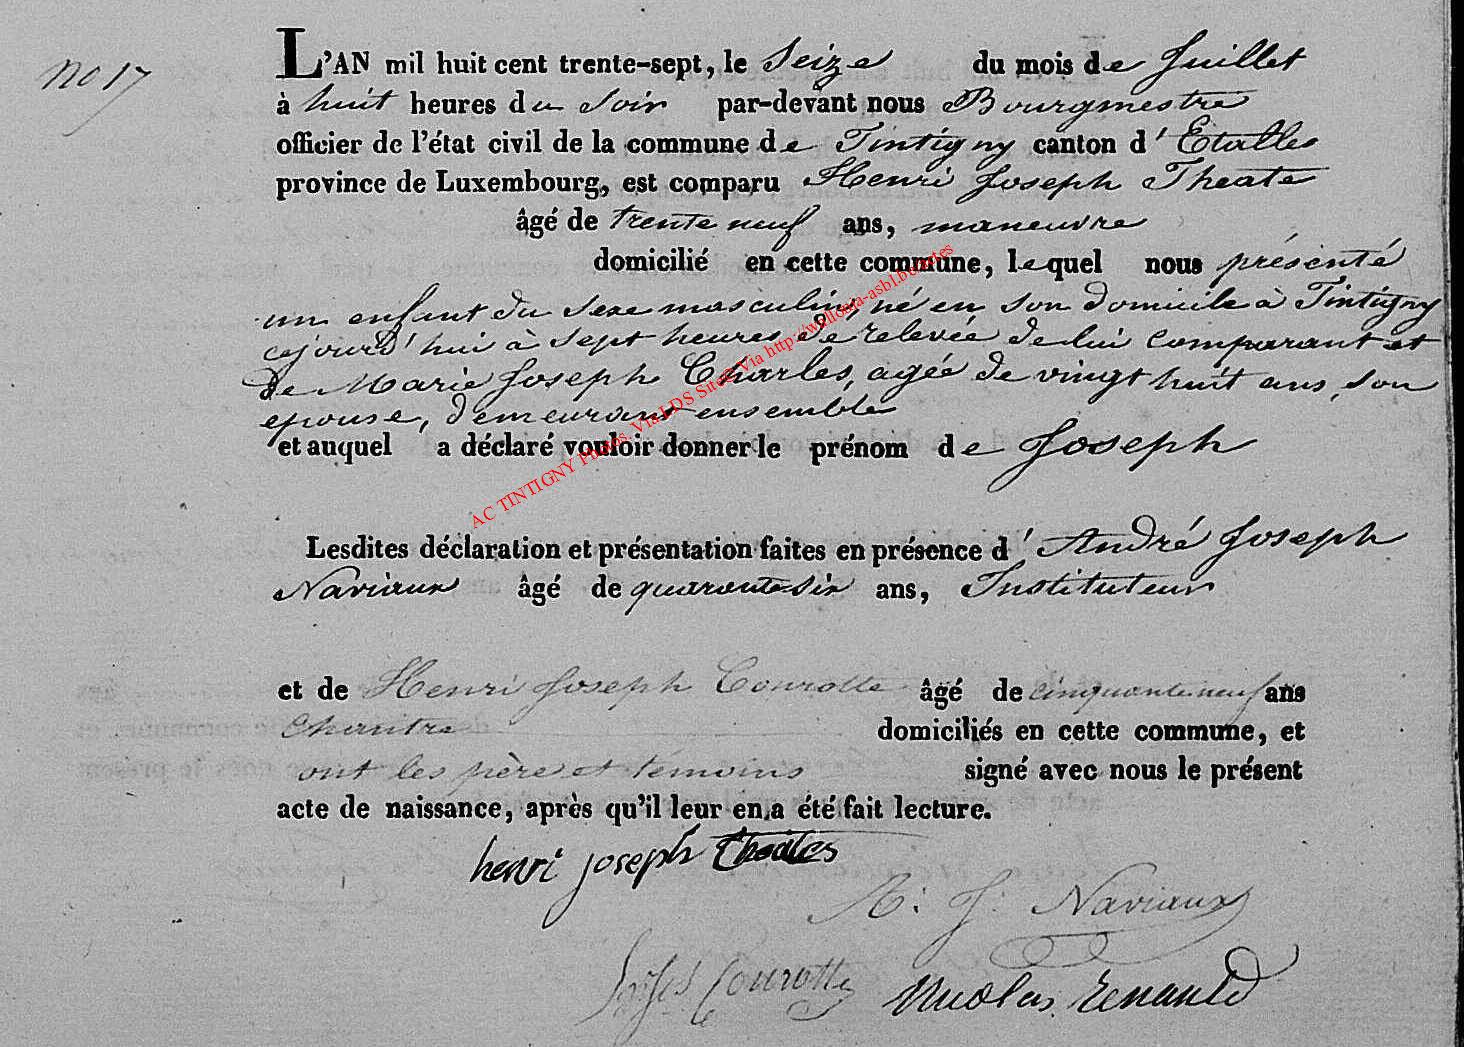 no 17
L'AN mil huit cent trente-sept, le Seize du mois de Juillet
à huit heures du Soir par-devant nous Bourgmestre
officier de l'état civil de la commune de Tintigny canton d' Etalles
province de Luxembourg, est comparu Henri Joseph Theate
âgé de trente neuf ans, maneuvre
domicilié en cette commune, lequel nous présenté
un enfant du sexe masculin, né en son domicile à Tintigny
cejourd'hui à sept heures de relevée de lui comparant et
de Marie Joseph Charles, agée de vingt huit ans, son
epouse, demeurant ensemble
et auquel a déclaré vouloir donner le prénom de Joseph
Lesdites déclaration et présentation faites en présence d' André Joseph
Naviaux âgé de quarante six ans, Instituteur
et de Henri Joseph Courotte âgé de cinquante neuf ans
Chantre domiciliés en cette commune, et
ont les père et témoins signé avec nous le présent
acte de naissance, après qu'il leur en a été fait lecture.
henri joseph theates
A: J: Naviaux
Courotte Nicolas Renauld
AC TINTIGNY Photos. Via LDS Site. Via http://wallonia-asbl.be/actes